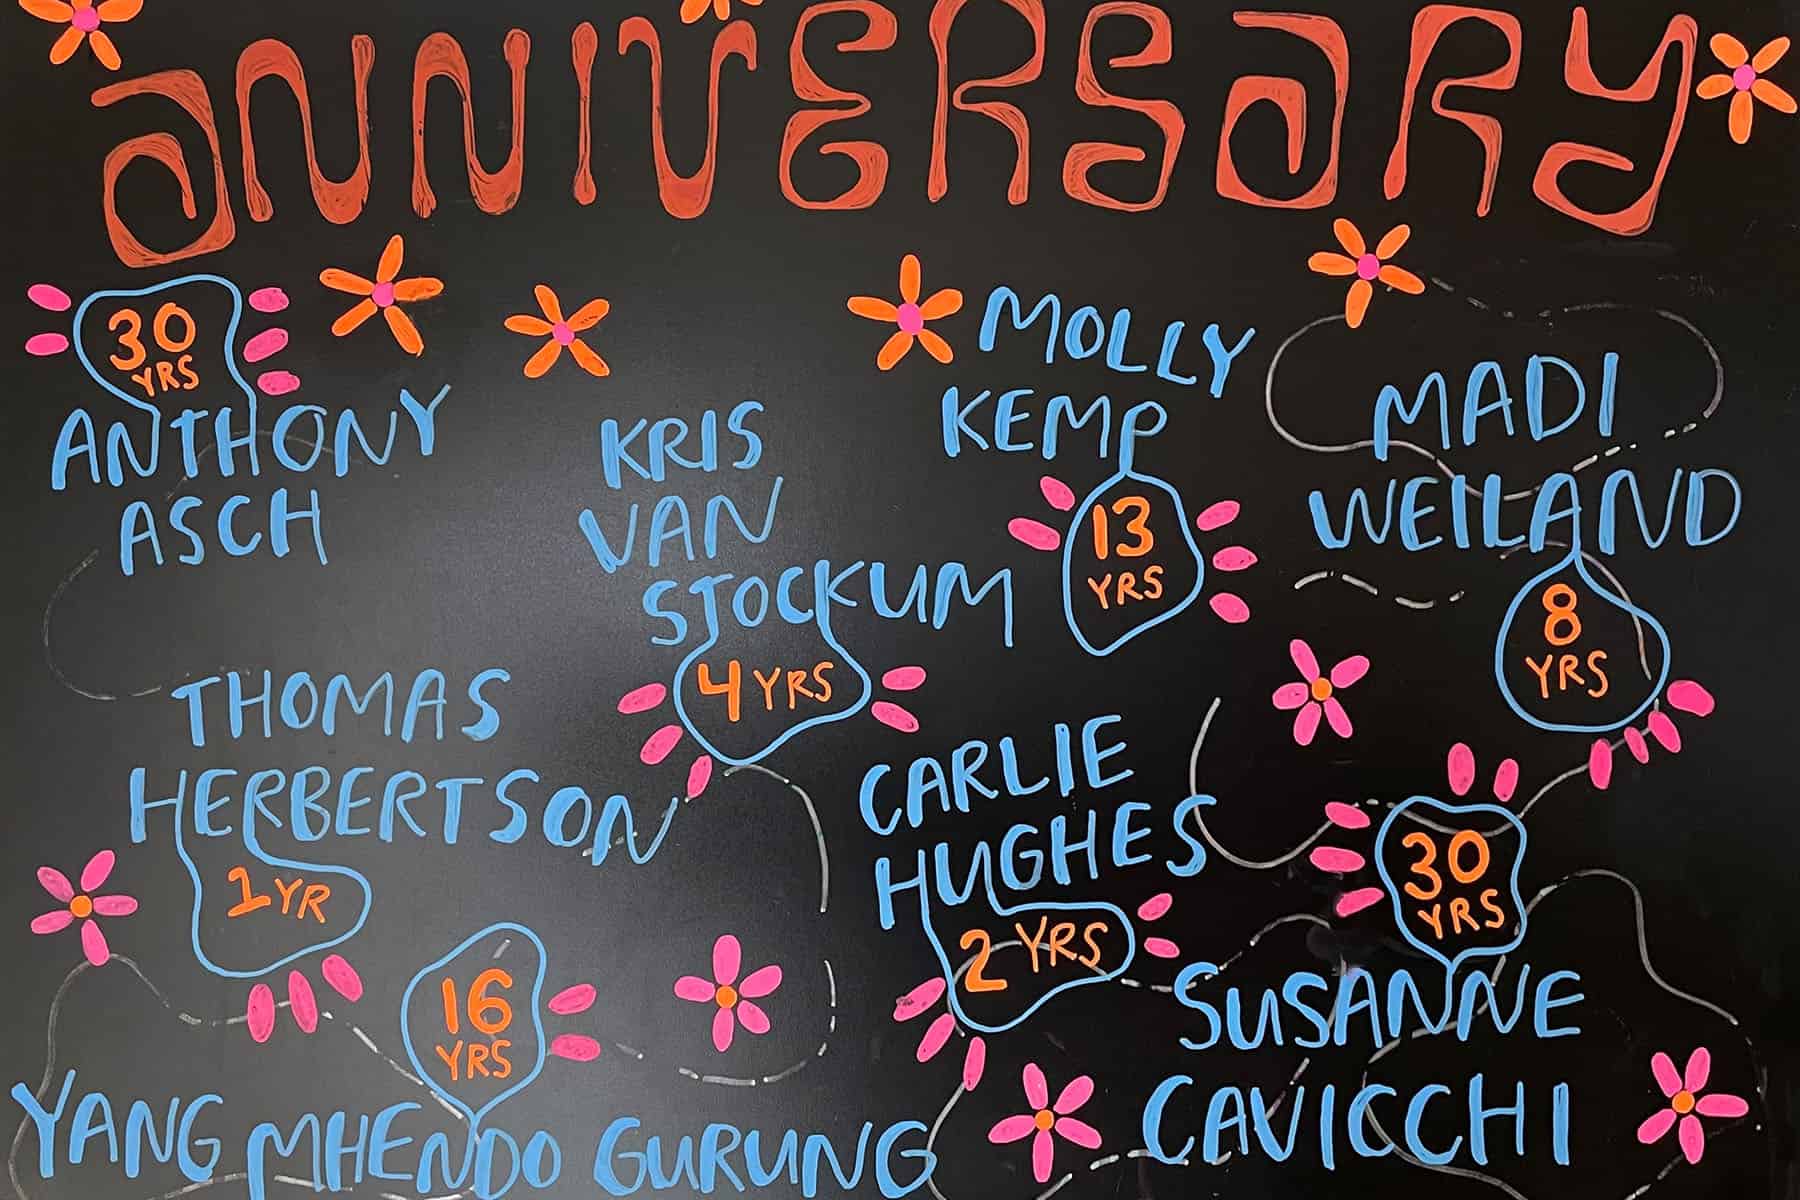 ANNIVERSARY
30
YRS
ANTHONY
ASCH
KRIS
VAN
STOCKUM
4 YRS
MOLLY
KEMP
13
YRS
MADI
WEILAND
8
YRS
THOMAS
HERBERTSON
1 YR
CARLIE
HUGHES
2 YRS
30
YRS
SUSANNE
CAVICCHI
16
YRS
YANG MHENDO GURUNG